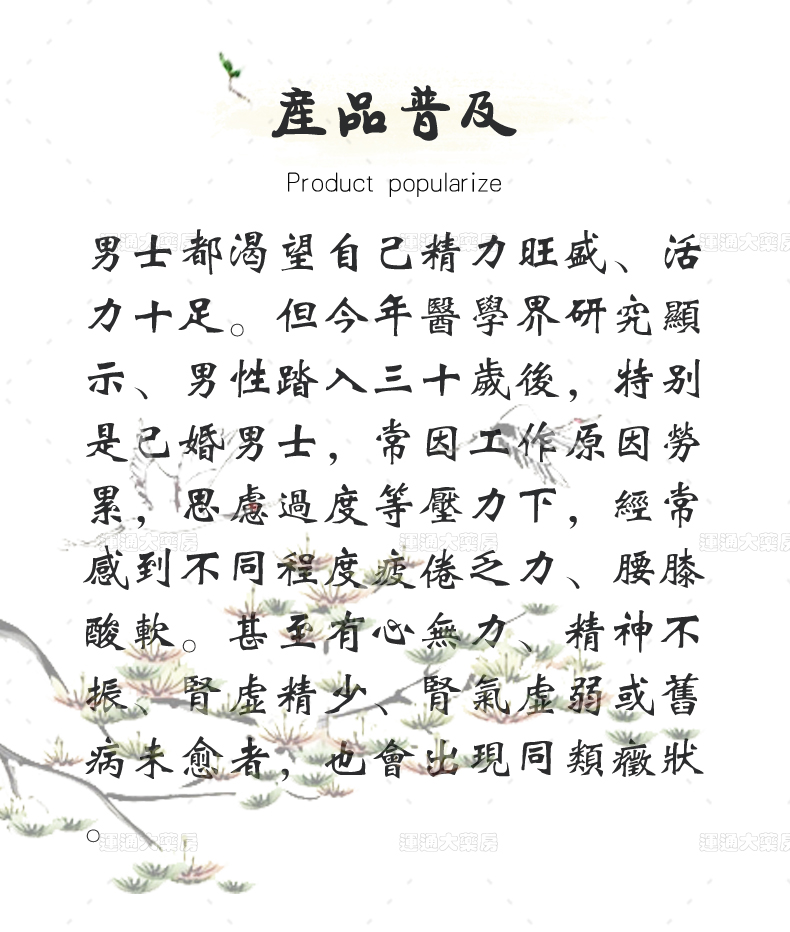 産品普及
Product popularize
男士都渴望自己精力旺盛、活
力十足。但今年醫學界研究顯
示、男性踏入三十歲後，特别
是已婚男士，常因工作原因勞
累，思慮過度等壓力下，經常
感到不同程度疲倦乏力、腰膝
酸軟。甚至有心無力、精神不
振、腎虚精少、腎氣虚弱或舊
病未愈者，也會出現同類癥狀
。
運通大藥房